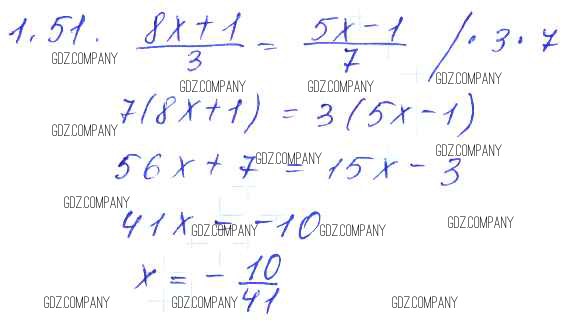 1.51. (8x+1)/3 = (5x-1)/7 / · 3 · 7
GDZ.COMPANY GDZ.COMPANY GDZ.COMPANY GDZ.COMPANY
7(8x+1) = 3(5x-1)
GDZ.COMPANY GDZ.COMPANY GDZ.COMPANY
56x + 7 = 15x - 3
GDZ.COMPANY
41x = -10
GDZ.COMPANY GDZ.COMPANY GDZ.COMPANY
x = - 10/41
GDZ.COMPANY GDZ.COMPANY GDZ.COMPANY